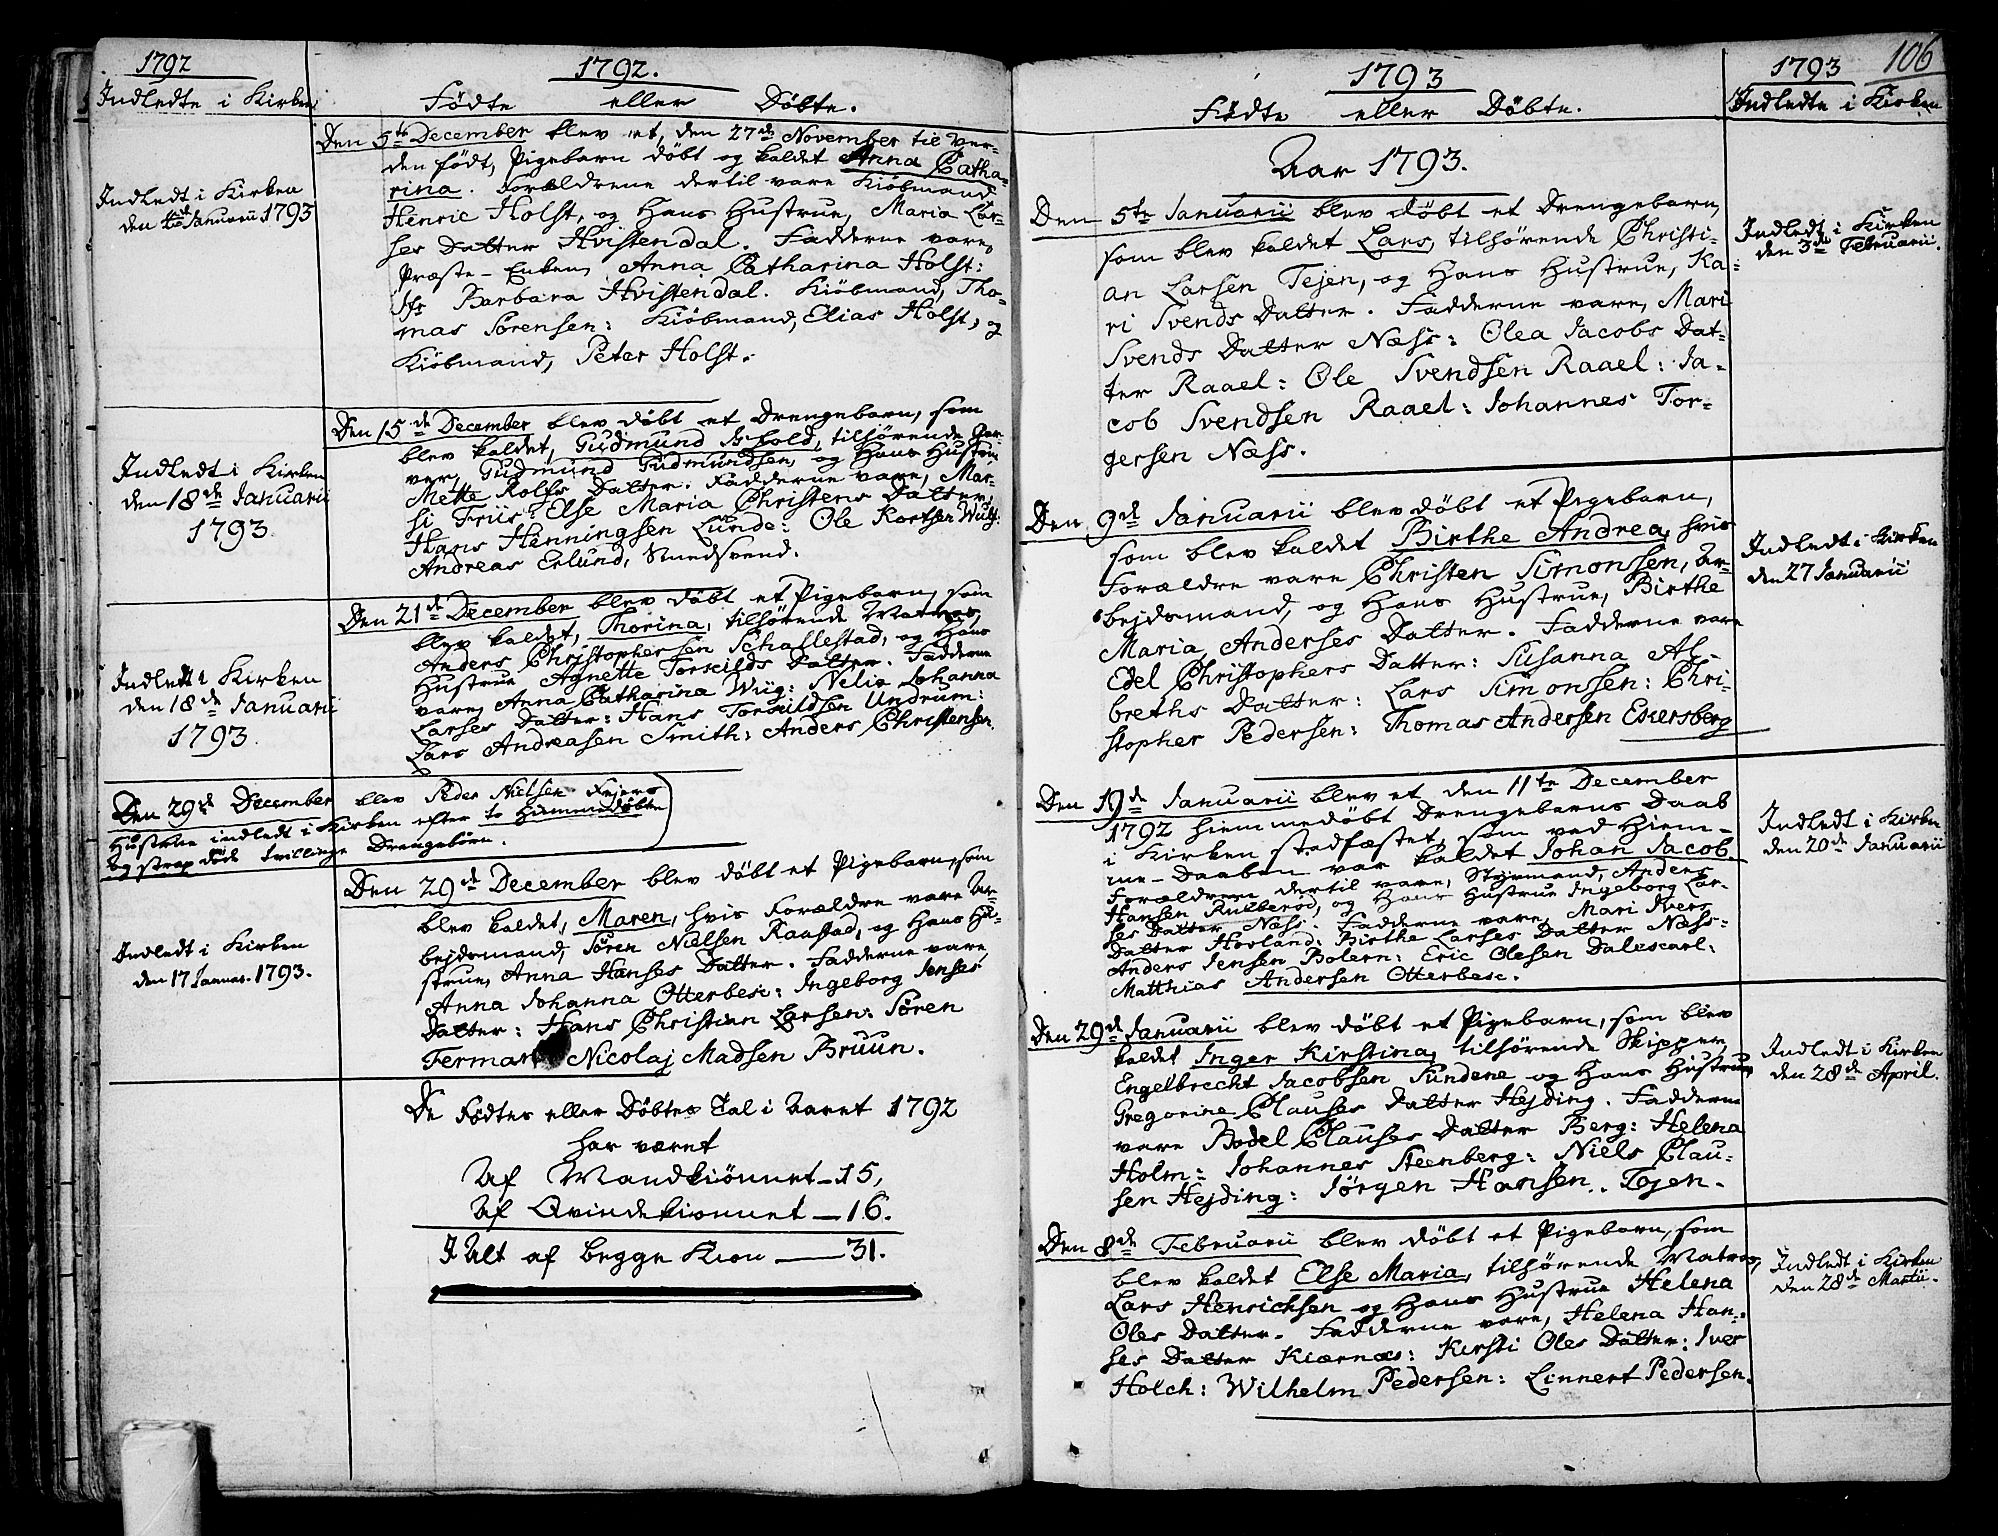 1792
Indledte i Kirken
1792.
Fødte eller Døbte.
Den 5te December blev et, den 27de November til Ver-
den født, Pigebarn døbt og kaldet Anna Catha-
rina. Forældrene dertil vare Kiøbmand,
Henric Holst, og Hans Hustrue, Maria Lar-
ses Datter Hvistendal. Fadderne vare,
Præste-Enken, Anna Catharina Holst:
Jfr Barbara Hvistendal. Kiøbmand, Tho-
mas Sørensen: Kiøbmand, Elias Holst, og
Kiøbmand, Peter Holst.
Indledt i Kirken
den Januarii 1793
Den 15de December blev døbt et Drengebarn, som
blev kaldet, Gudmund, tilhørende Gar-
ver, Gudmund Gudmundsen, og Hans Hustrue
Mette Rolfs Datter. Fadderne vare, Mar-
si Friis: Else Maria Christens Datter,
Hans Henningsen Lunde: Ole Kortsen Wug:
Andreas Erlund, Smedsvend.
Indledt i Kirken
den 18de Januarii
1793.
Den 21de December blev døbt et Pigebarn, som
blev kaldet, Thorina, tilhørende Matros,
Anders Christophersen Schallestad, og Hans
Hustrue Agnette Torkilds Datter. Fadderne
vare, Anna Catharina Wiig: Nelia Johanna
Larses Datter: Hans Torkildsen Undrum:
Lars Andreasen Smith: Anders Christensen.
Indledt i Kirken
den 18de Januarii
1793.
Den 29de December blev Peder Nielsen Fejers
Hustrue indledt i Kirken efter to Hiemmedøbte
og strax døde Tvillinge Drengebørn.
Den 29de December blev døbt et Pigebarn, som
blev kaldet, Maren, hvis Forældre vare Ar-
bejdsmand, Søren Nielsen Raastad, og Hans Hu-
strue, Anna Hanses Datter. Fadderne vare,
Anna Johanna Otterbech: Ingeborg Jenses
Datter: Hans Christian Larsen: Søren
Ferman Nicolaj Madsen Bruun.
Indledt i Kirken
den 17 Januar. 1793.
De Fødtes eller Døbtes Tal i Aaret 1792
har været
Af Mandkiønnet - 15,
Af Qvindekiønnet - 16.
I Alt af begge Kiøn - 31.
1793
Fødte eller Døbte.
1793
106
Indledte i Kirken
Aar 1793.
Den 5te Januarii blev døbt et Drengebarn,
som blev kaldet Lars, tilhørende Christi-
an Larsen Tejen, og Hans Hustrue, Ka-
ri Svends Datter. Fadderne vare, Mari
Svends Datter Næss: Olea Jacobs Dat-
ter Raael: Ole Svendsen Raael: Ja-
cob Svendsen Raael: Johannes Tor-
gersen Næss.
Indledt i Kirken
den 3de Februarii.
Den 9de Januarii blev døbt et Pigebarn,
som blev kaldet Birthe Andrea, hvis
Forældre vare Christen Simonssen, Ar-
bejdsmand, og Hans Hustrue, Birthe
Maria Anderses Datter. Fadderne vare
Edel Christophers Datter: Susanna Al-
breths Datter: Lars Simonssen: Chri-
stopher Pedersen: Thomas Andersen Ekersberg
Indledt i Kirken
den 27 Januarii
Den 19de Januarii blev et den 11te December
1792 hiemmedøbt Drengebarns Daab
i Kirken stadfæstet, som ved Hiem-
me-Daaben var kaldet Johan Jacob.
Forældrene dertil vare, Styrmand, Anders
Hansen, og Hans Hustrue Ingeborg Lar-
ses Datter Næss. Fadderne vare, Mari Ivers
Datter Hovland: Birthe Larses Datter Næss:
Anders Jensen Bolern: Eric Olesen Dalescarl:
Matthias Andersen Otterbech.
Indledt i Kirken
den 20de Januarii
Den 29de Januarii blev døbt et Pigebarn, som blev
kaldet Inger Kirstina, tilhørende Skipper
Engelbrecht Jacobsen Sundene og Hans Hustrue
Gregorine Clauses Datter Hejding. Fadderne
vare Bodel Clauses Datter Berg: Helena
Holm: Johannes Steenberg: Niels Clau-
sen Hejding: Jørgen Hansen Tojen.
Indledt i Kirken
den 28de April.
Den 8de Februarii blev døbt et Pigebarn, som
blev kaldet Else Maria, tilhørende Matros,
Lars Henrichsen og Hans Hustrue Helena
Oles Datter. Fadderne vare, Helena Han-
ses Datter Kiærnæs: Kirsti Oles Datter: Iver
Holch: Wilhelm Pedersen: Linnert Pedersen.
Indledt i Kirken
den 28de Martii.